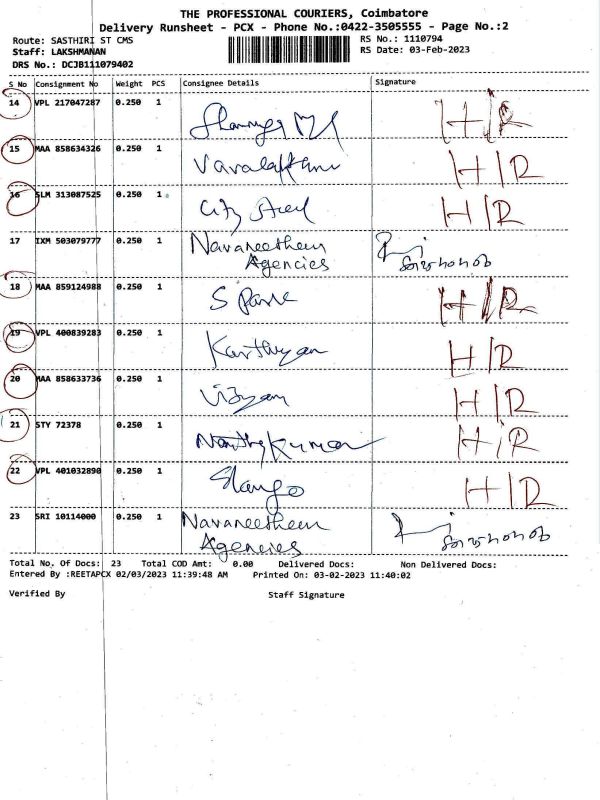 THE PROFESSIONAL COURIERS, Coimbatore
Delivery Runsheet - PCX - Phone No.:0422-3505555 - Page No.:2
Route: SASTHIRI ST CMS
RS No.: 1110794
Staff: LAKSHMANAN
RS Date: 03-Feb-2023
DRS No.: DCJB111079402
S No Consignment No Weight PCS Consignee Details Signature
14 VPL 217047287 0.250 1 H/R
15 MAA 858634326 0.250 1 Varalakshmi H/R
16 SLM 313087525 0.250 1 City Steel H/R
17 IXM 503079777 0.250 1 Navaneetham
Agencies
18 MAA 859124988 0.250 1 H/R
19 VPL 400839283 0.250 1 H/R
20 MAA 858633736 0.250 1 H/R
21 STY 72378 0.250 1 H/R
22 VPL 401032890 0.250 1 Elango H/R
23 SRI 10114000 0.250 1 Navaneetham
Agencies
Total No. Of Docs: 23 Total COD Amt: 0.00 Delivered Docs: Non Delivered Docs:
Entered By :REETAPCX 02/03/2023 11:39:48 AM Printed On: 03-02-2023 11:40:02
Verified By Staff Signature